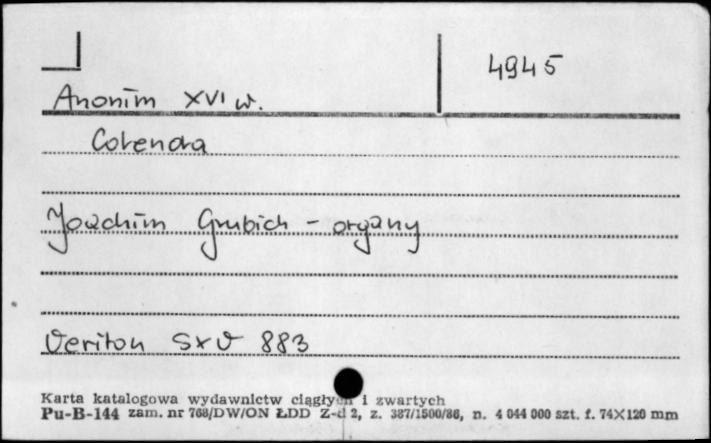 4945
Anonim XVI w.
Corenda
Joachim Grubich - organy
Veriton SXV 883
Karta katalogowa wydawnictw ciągłych i zwartych
Pu-B-144 zam. nr 768/DW/ON ŁDD Z-d 2, z. 387/1500/86, n. 4 044 000 szt. f. 74X120 mm